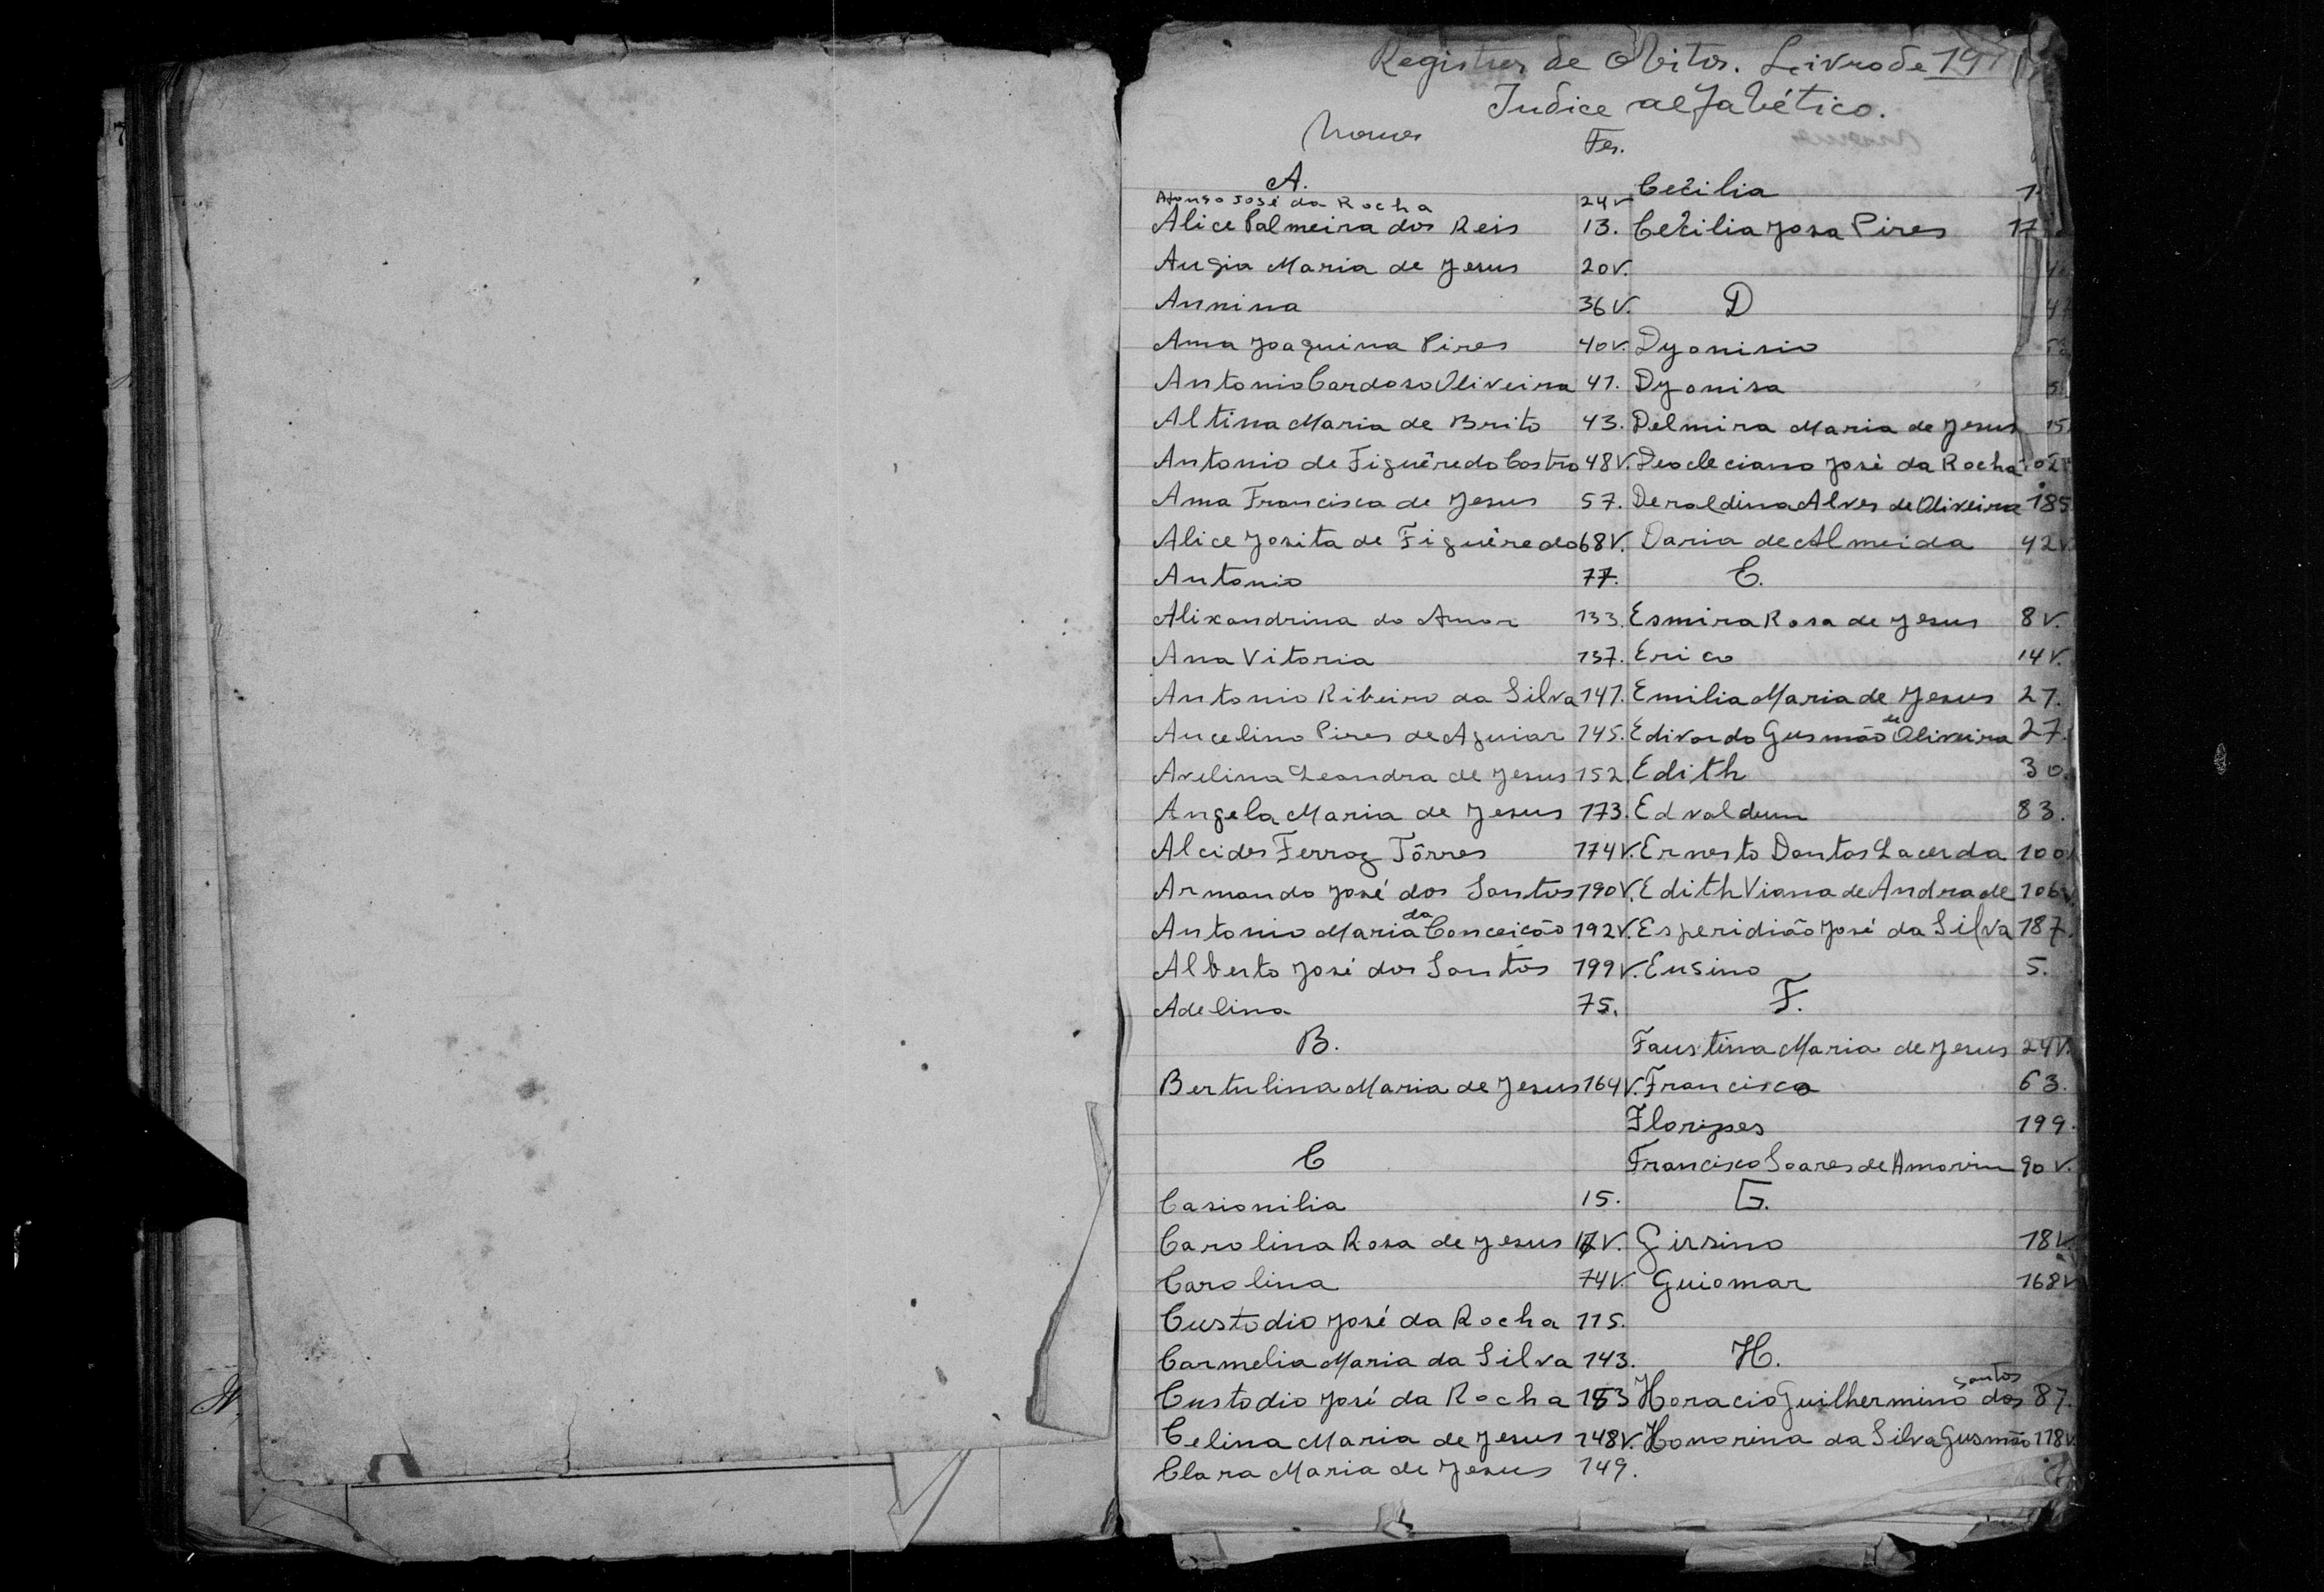 Registros de Obitos. Livro de 19
Indice alfabético.
Nomes Fls.
A.
Afonso José da Rocha 24v
Alice Palmeira dos Reis 13.
Angia Maria de Jesus 20v.
Annina 36v.
Ana Joaquina Pires 40v.
Antonio Cardoso Oliveira 41.
Altina Maria de Brito 43.
Antonio de Figuêredo Castro 48v.
Ana Francisca de Jesus 57.
Alice Josita de Figuêredo 68v.
Antonio 77.
Alixandrina do Amor 133.
Ana Vitoria 137.
Antonio Ribeiro da Silva 141.
Ancelino Pires de Aguiar 145.
Avelina Leandra de Jesus 152.
Angela Maria de Jesus 173.
Alcides Ferraz Tôrres 174v.
Armando José dos Santos 190v.
Antonio Maria da Conceição 192v.
Alberto José dos Santos 199v.
Adelina 75.
B.
Bertulina Maria de Jesus 164v.
C
Casionilia 15.
Carolina Rosa de Jesus v.
Carolina 74v.
Custodio José da Rocha 115.
Carmelia Maria da Silva 143.
Custodio José da Rocha
Celina Maria de Jesus 148v.
Clara Maria de Jesus 149.
Cecilia
Cecilia Josa Pires 17
D
Dyonisio
Dyonisa
Delmira Maria de Jesus
Deocleciano José da Rocha
Deraldina Alves de Oliveira 185
Daria de Almeida 42v
E.
Esmira Rosa de Jesus 8v.
Erico 14v.
Emilia Maria de Jesus 27.
Edivardo Gusmão de Oliveira 27.
Edith 30.
Edvaldum 83.
Ernesto Dantas Lacerda 100
Edith Viana de Andrade 106v.
Esperidião José da Silva 187.
Eusino 5.
F.
Faustina Maria de Jesus 24v.
Francisca 63.
Floripes 199.
Francisco Soares de Amorim 90v.
G.
Girsino 18v
Guiomar 168v
H.
Horacio Guilhermino dos Santos 87.
Honorina da Silva Gusmão 118v.